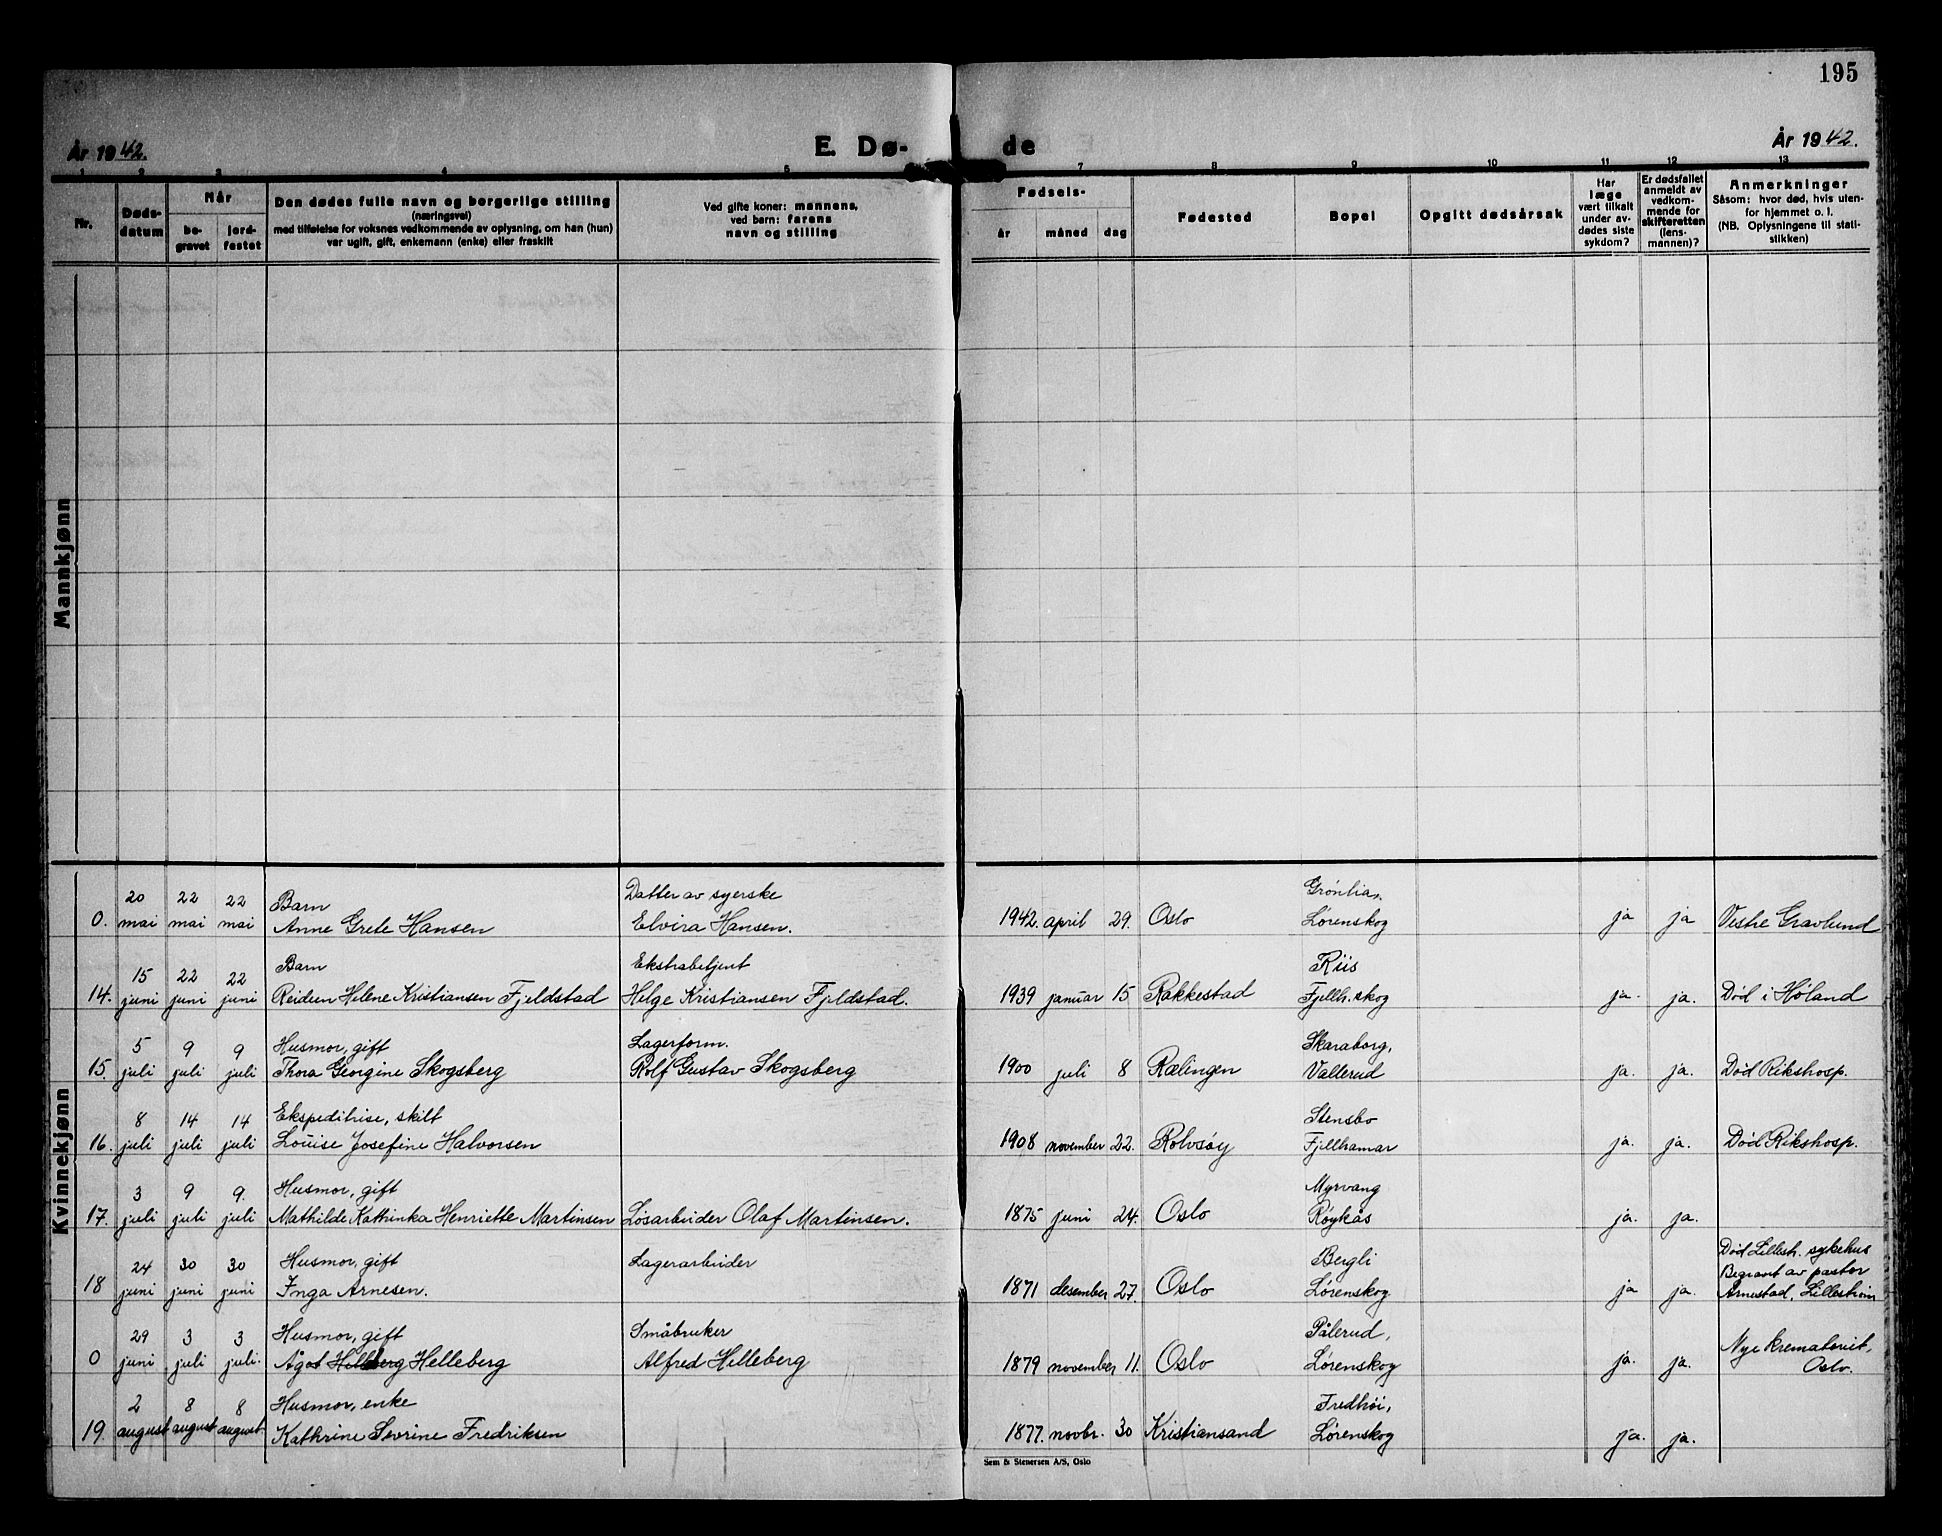 195
År 1942.
E. Dø-
de
År 1942.
1 2 3 4 5 7 8 9 10 11 12 13
Nr.
Døds-
datum
Når
be-
gravet
jord-
festet
Den dødes fulle navn og borgerlige stilling
(næringsvei)
med tilføielse for voksnes vedkommende av oplysning, om han (hun)
var ugift, gift, enkemann (enke) eller fraskilt
Ved gifte koner: mannens,
ved barn: farens
navn og stilling
Fødsels-
år måned dag
Fødested
Bopel
Opgitt dødsårsak
Har
læge
vært tilkalt
under av-
dødes siste
sykdom?
Er dødsfallet
anmeldt av
vedkom-
mende for
skifteretten
(lens-
mannen)?
Anmerkninger
Såsom: hvor død, hvis uten-
for hjemmet o. l.
(NB. Oplysningene til stati-
stikken)
Mannkjønn
Kvinnekjønn
20 22 22 Barn Datter av syerske Grønlia,
0. mai mai mai Anne Grete Hansen Elvira Hansen. 1942. april 29. Oslo Lørenskog ja ja Vestre Gravlund
15 22 22 Barn Ekstrabetjent Riis
14. juni juni juni Reidun Helene Kristiansen Fjeldstad Helge Kristiansen Fjeldstad. 1939 januar 15 Rakkestad Fjellh. skog ja. ja. Død i Høland
5 9 9 Husmor, gift Lagerform. Skaraborg,
15. juli juli juli Thora Georgine Skogsberg Rolf Gustav Skogsberg 1900 juli 8 Rælingen Vallerud ja. ja. Død Rikshosp.
8 14 14 Ekspeditrise, skilt Stensbo
16. juli juli juli Louise Josefine Halvorsen 1908 november 22. Rolvsøy Fjellhamar ja. ja. Død Rikshosp.
3 9 9. Husmor, gift Myrvang
17. juli juli juli Mathilde Kathinka Henriette Martinsen Løsarbeider Olaf Martinsen. 1875 juni 24. Oslo Røykås ja. ja.
24 30 30 Husmor, gift Lagerarbeider Bergli Død Lillestr. sykehus
Begravt av pastor
18 juni juni juni Inga Arnesen. 1871 desember 27. Oslo Lørenskog ja ja. Arnestad, Lillestrøm
29 3 3 Husmor, gift Småbruker Pålerud, Nye krematoriet,
0 juni juli juli. Ågot Helleberg Alfred Helleberg 1879 november 11. Oslo Lørenskog ja. ja. Oslo.
2 8 8 Husmor, enke Fredhøi,
19. august august august. Kathrine Sevrine Fredriksen 1877. novbr. 30 Kristiansand Lørenskog ja. ja.
Sem & Stenersen A/S, Oslo